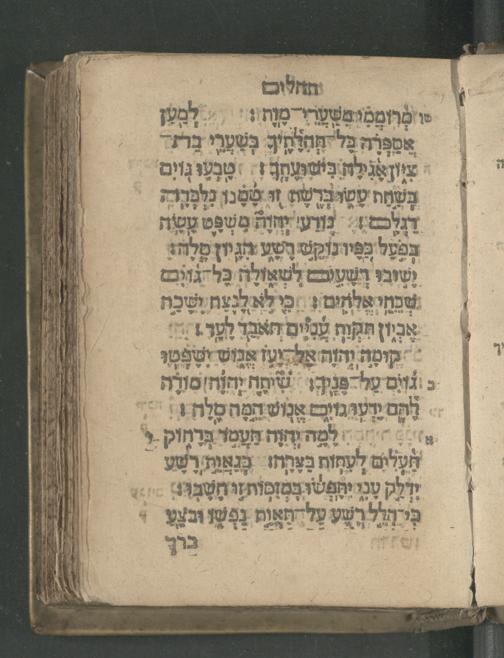 תהלים
טו מְרוֹמֲמִי מִשַּׁעֲרֵי־ מָוֶת׃ לְמַעַן
אֲסַפְּרָה כָּל־תְּהִלָּתֶיךָ בְּשַׁעֲרֵי בַת־
צִיּוֹן אָגִילָה בִּישׁוּעָתֶךָ׃ טָבְעוּ גוֹיִם
בְּשַׁחַת עָשׂוּ בְּרֶשֶׁת זוּ טָמָנוּ נִלְכְּדָה
רַגְלָם׃ נוֹדַע יְהוָה מִשְׁפָּט עָשָׂה
בְּפֹעַל כַּפָּיו נוֹקֵשׁ רָשָׁע הִגָּיוֹן סֶלָה׃
יָשׁוּבוּ רְשָׁעִים לִשְׁאוֹלָה כָּל־גּוֹיִם
שְׁכֵחֵי אֱלֹהִים׃ כִּי לֹא לָנֶצַח יִשָּׁכַח
אֶבְיוֹן תִּקְוַת עֲנִיִּים תֹּאבַד לָעַד׃
קוּמָה יְהוָה אַל־יָעֹז אֱנוֹשׁ יִשָּׁפְטוּ
כ גוֹיִם עַל־פָּנֶיךָ׃ שִׁיתָה יְהוָה מוֹרָה
לָהֶם יֵדְעוּ גוֹיִם אֱנוֹשׁ הֵמָּה סֶּלָה׃
א לָמָה יְהוָה תַּעֲמֹד בְּרָחוֹק י
תַּעְלִים לְעִתּוֹת בַּצָּרָה׃ בְּגַאֲוַת רָשָׁע
יִדְלַק עָנִי יִתָּפְשׂוּ בִּמְזִמּוֹת זוּ חָשָׁבוּ׃
כִּי־הִלֵּל רָשָׁע עַל־תַּאֲוַת נַפְשׁוֹ וּבֹצֵעַ
בֵּרֵךְ